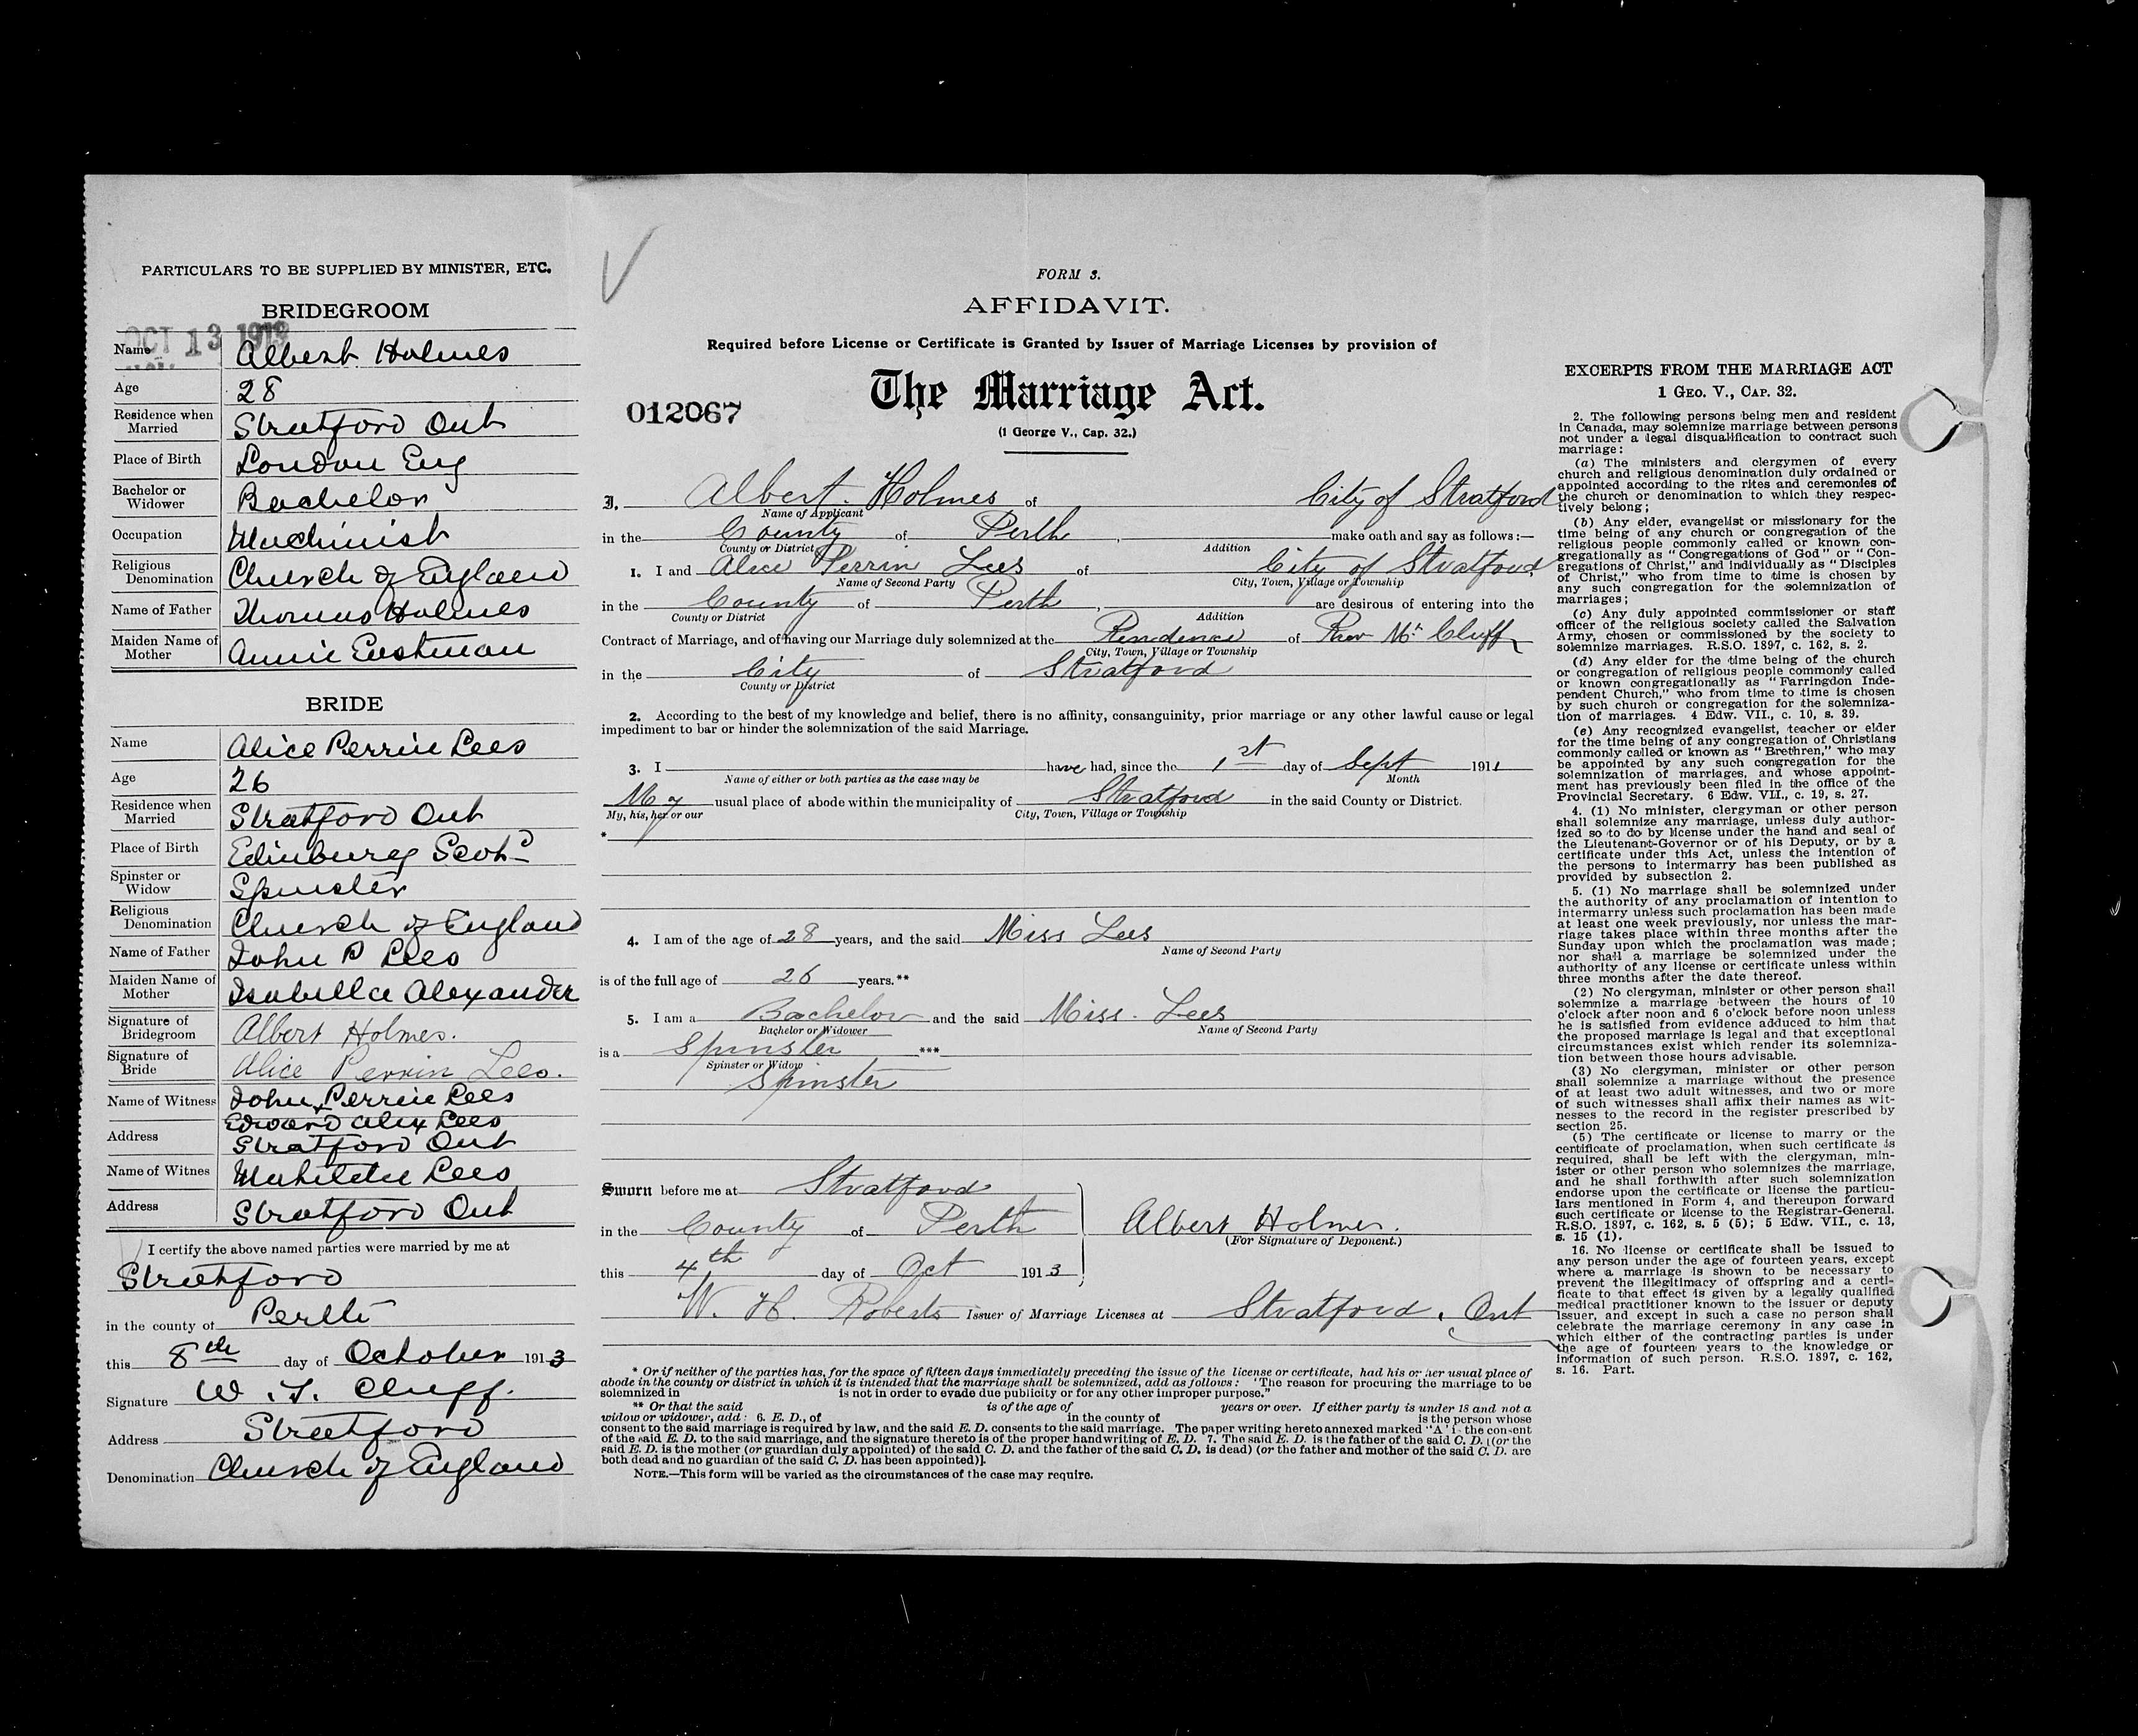 PARTICULARS TO BE SUPPLIED BY MINISTER, ETC.
BRIDEGROOM
OCT 13 1913
Name Albert Holmes
Age 28
Residence when Married Stratford Ont
Place of Birth London Eng
Bachelor or Widower Bachelor
Occupation Machinist
Religious Denomination Church of England
Name of Father Thomas Holmes
Maiden Name of Mother Annie Eastman
BRIDE
Name Alice Perrin Lees
Age 26
Residence when Married Stratford Ont
Place of Birth Edinburg Scotd
Spinster or Widow Spinster
Religious Denomination Church of England
Name of Father John P Lees
Maiden Name of Mother Isabella Alexander
Signature of Bridegroom Albert Holmes.
Signature of Bride Alice Perrin Lees.
Name of Witness John Perrin Lees
Edward Alex Lees
Address Stratford Ont
Name of Witnes Lees
Address Stratford Ont
I certify the above named parties were married by me at
Stratford
in the county of Perth
this 8th day of October 1913
Signature W. T. Cluff.
Address Stratford
Denomination Church of England
FORM 3.
AFFIDAVIT.
Required before License or Certificate is Granted by Issuer of Marriage Licenses by provision of
The Marriage Act.
012067
(1 George V., Cap. 32.)
I, Albert Holmes of City of Stratford
Name of Applicant
in the County of Perth, make oath and say as follows:—
County or District Addition
1. I and Alice Perrin Lees of City of Stratford
Name of Second Party City, Town, Village or Township
in the County of Perth, are desirous of entering into the
County or District Addition
Contract of Marriage, and of having our Marriage duly solemnized at the Residence of Rev Mr Cluff
City, Town, Village or Township
in the City of Stratford
County or District
2. According to the best of my knowledge and belief, there is no affinity, consanguinity, prior marriage or any other lawful cause or legal
impediment to bar or hinder the solemnization of the said Marriage.
3. I have had, since the 1st day of Sept 1911
Name of either or both parties as the case may be Month
My usual place of abode within the municipality of Stratford in the said County or District.
My, his, her or our City, Town, Village or Township
*
4. I am of the age of 28 years, and the said Miss Lees
Name of Second Party
is of the full age of 26 years.**
5. I am a Bachelor and the said Miss. Lees
Bachelor or Widower Name of Second Party
is a Spinster ***
Spinster or Widow
Spinster
Sworn before me at Stratford
in the County of Perth
this 4th day of Oct 1913
Albert Holmes.
(For Signature of Deponent.)
W. H. Roberts Issuer of Marriage Licenses at Stratford, Ont
* Or if neither of the parties has, for the space of fifteen days immediately preceding the issue of the license or certificate, had his or her usual place of
abode in the county or district in which it is intended that the marriage shall be solemnized, add as follows: 'The reason for procuring the marriage to be
solemnized in is not in order to evade due publicity or for any other improper purpose."
** Or that the said is of the age of years or over. If either party is under 18 and not a
widow or widower, add: 6. E. D., of in the county of is the person whose
consent to the said marriage is required by law, and the said E. D. consents to the said marriage. The paper writing hereto annexed marked "A" is the consent
of the said E. D. to the said marriage, and the signature thereto is of the proper handwriting of E. D. 7. The said E. D. is the father of the said C. D. (or the
said E. D. is the mother (or guardian duly appointed) of the said C. D. and the father of the said C. D. is dead) (or the father and mother of the said C. D. are
both dead and no guardian of the said C. D. has been appointed)].
NOTE.—This form will be varied as the circumstances of the case may require.
EXCERPTS FROM THE MARRIAGE ACT
1 GEO. V., CAP. 32.
2. The following persons being men and resident
in Canada, may solemnize marriage between persons
not under a legal disqualification to contract such
marriage:
(a) The ministers and clergymen of every
church and religious denomination duly ordained or
appointed according to the rites and ceremonies of
the church or denomination to which they respec-
tively belong;
(b) Any elder, evangelist or missionary for the
time being of any church or congregation of the
religious people commonly called or known con-
gregationally as "Congregations of God" or "Con-
gregations of Christ," and individually as "Disciples
of Christ," who from time to time is chosen by
any such congregation for the solemnization of
marriages;
(c) Any duly appointed commissioner or staff
officer of the religious society called the Salvation
Army, chosen or commissioned by the society to
solemnize marriages. R.S.O. 1897, c. 162, s. 2.
(d) Any elder for the time being of the church
or congregation of religious people commonly called
or known congregationally as "Farringdon Inde-
pendent Church," who from time to time is chosen
by such church or congregation for the solemniza-
tion of marriages. 4 Edw. VII., c. 10, s. 39.
(e) Any recognized evangelist, teacher or elder
for the time being of any congregation of Christians
commonly called or known as "Brethren," who may
be appointed by any such congregation for the
solemnization of marriages, and whose appoint-
ment has previously been filed in the office of the
Provincial Secretary. 6 Edw. VII., c. 19, s. 27.
4. (1) No minister, clergyman or other person
shall solemnize any marriage, unless duly author-
ized so to do by license under the hand and seal of
the Lieutenant-Governor or of his Deputy, or by a
certificate under this Act, unless the intention of
the persons to intermarry has been published as
provided by subsection 2.
5. (1) No marriage shall be solemnized under
the authority of any proclamation of intention to
intermarry unless such proclamation has been made
at least one week previously, nor unless the mar-
riage takes place within three months after the
Sunday upon which the proclamation was made;
nor shall a marriage be solemnized under the
authority of any license or certificate unless within
three months after the date thereof.
(2) No clergyman, minister or other person shall
solemnize a marriage between the hours of 10
o'clock after noon and 6 o'clock before noon unless
he is satisfied from evidence adduced to him that
the proposed marriage is legal and that exceptional
circumstances exist which render its solemniza-
tion between those hours advisable.
(3) No clergyman, minister or other person
shall solemnize a marriage without the presence
of at least two adult witnesses, and two or more
of such witnesses shall affix their names as wit-
nesses to the record in the register prescribed by
section 25.
(5) The certificate or license to marry or the
certificate of proclamation, when such certificate is
required, shall be left with the clergyman, min-
ister or other person who solemnizes the marriage,
and he shall forthwith after such solemnization
endorse upon the certificate or license the particu-
lars mentioned in Form 4, and thereupon forward
such certificate or license to the Registrar-General.
R.S.O. 1897, c. 162, s. 5 (5); 5 Edw. VII., c. 13,
s. 15 (1).
16. No license or certificate shall be issued to
any person under the age of fourteen years, except
where a marriage is shown to be necessary to
prevent the illegitimacy of offspring and a certi-
ficate to that effect is given by a legally qualified
medical practitioner known to the issuer or deputy
issuer, and except in such a case no person shall
celebrate the marriage ceremony in any case in
which either of the contracting parties is under
the age of fourteen years to the knowledge or
information of such person. R.S.O. 1897, c. 162,
s. 16. Part.